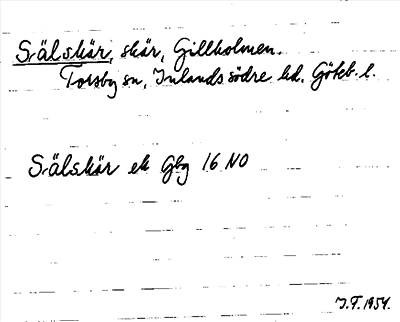 S. Älskär, skär, Gillholmen.
Torsby sn, Inlands södre hd. Göteb. l.
S. Älskär ek Gbg 16 NO
J.F. 1954.